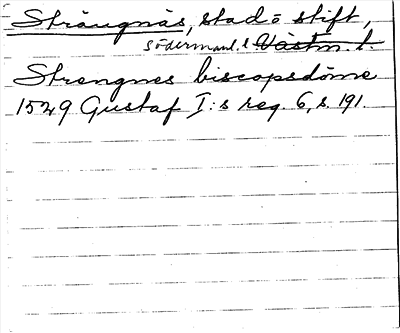 Strängnäs, stad o stift,
södermanl. l. Västm. l.
Strengnes biscopsdöme
1529 Gustaf I:s reg. 6, s. 191.